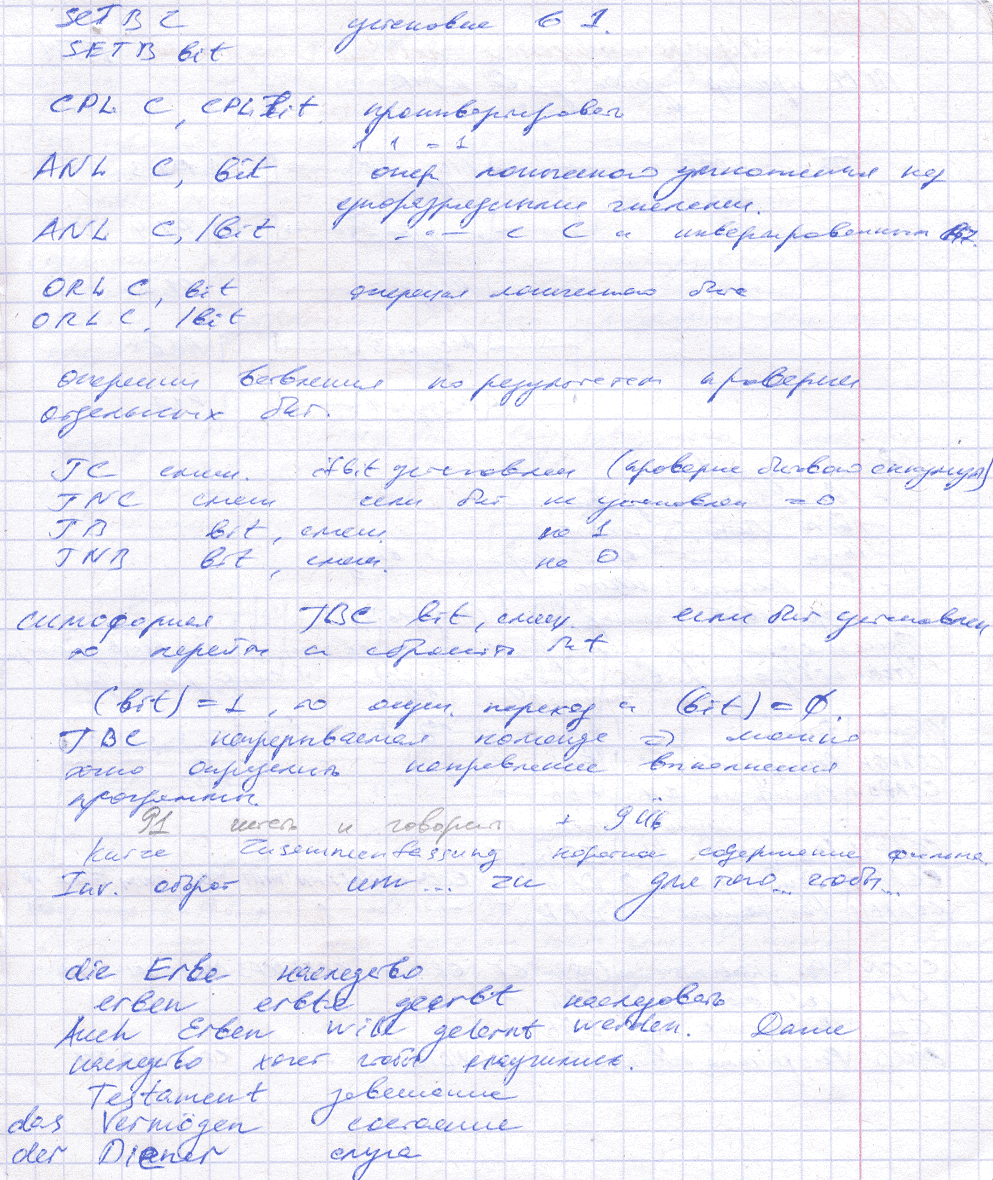 SETB C установка в 1.
SETB bit
CPL C, CPL bit проинвертировать
1 1 = 1
ANL C, bit опер логического умножения над
одноразрядными числами.
ANL C, /bit -"- с C и инвертированным
ORL C, bit операция логического
ORL C, /bit
Операции ветвления по результатам проверки
отдельных бит.
JC смещ. if bit установлен (проверка битового аккумул)
JNC смещ если бит не установлен = 0
JB bit, смещ. на 1
JNB bit, смещ. на 0
симофорная JBC bit, смещ. если бит установлен
то перейти и сбросить bit
(bit) = 1, то осущ. переход и (bit) = 0.
JBC непрерываемая команда => можно
определить направление выполнения
программы.
91 читать и говорить + 9
Kurze Zusammenfassung короткое содержание фильма.
Inv. оборот um... zu для того... чтобы...
die Erbe наследство
erben erbte geerbt наследовать
Auch Erben will gelernt werden. Даже
наследство хочет чтобы
Testament завещание
das Vermögen состояние
der Diener слуга